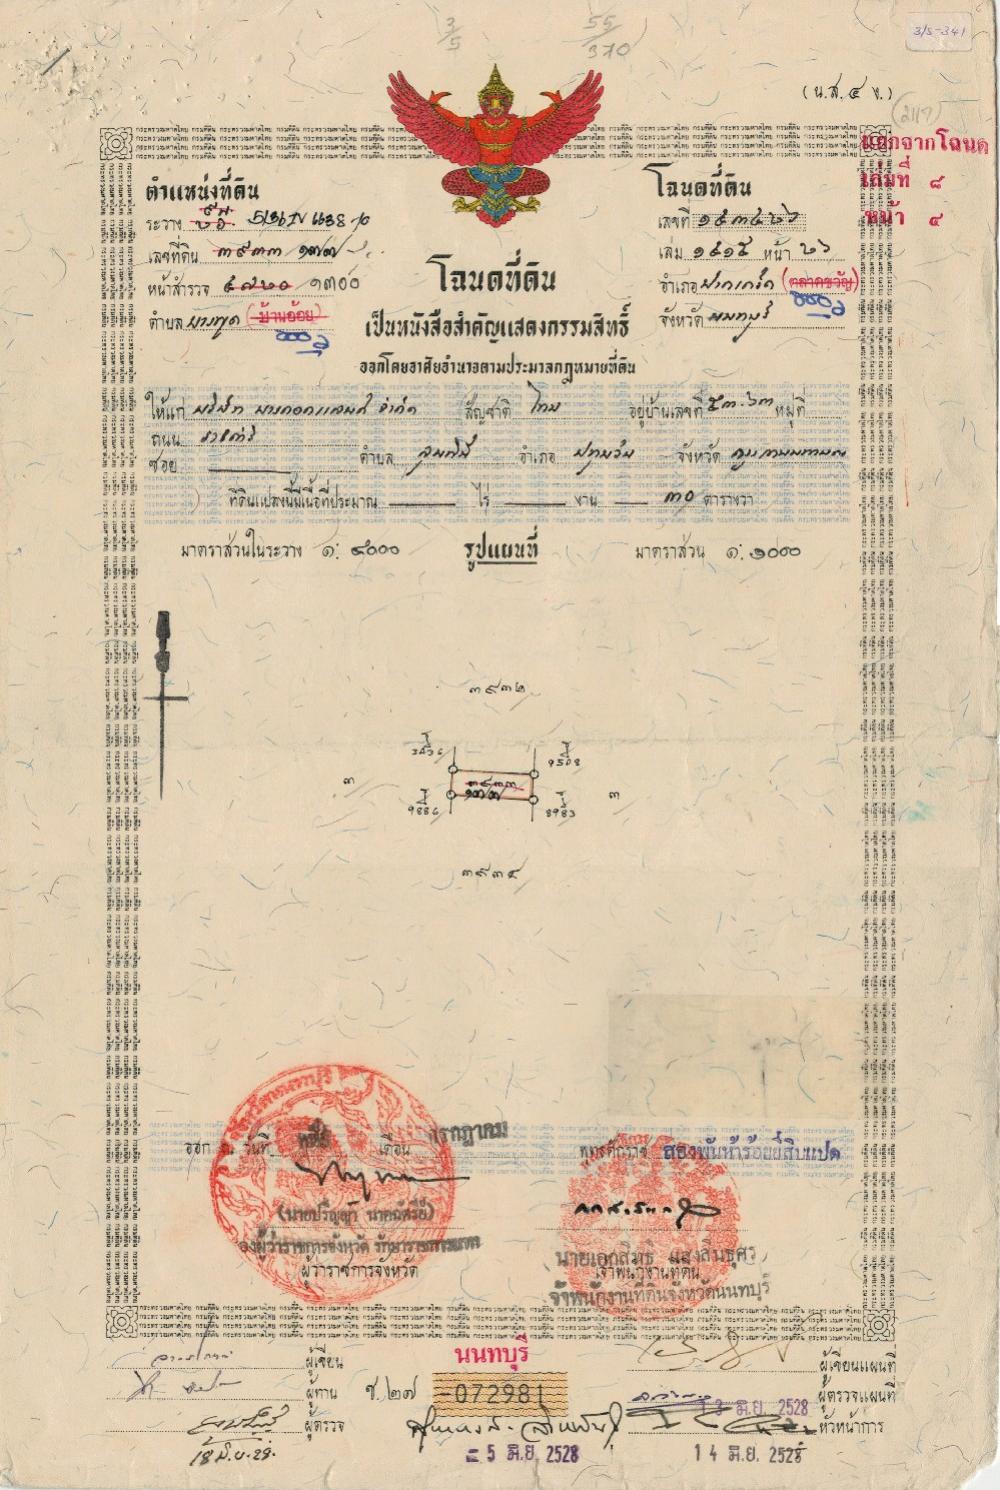 3/5-341
3/5
55/370
(น.ส.๔ ง.)
แยกจากโฉนด
เล่มที่ ๘
หน้า ๔
ตำแหน่งที่ดิน
โฉนดที่ดิน
ระวาง 5136 IV 6638-10
เลขที่
เลขที่ดิน ๓๙๓๓ ๑๗๗
เล่ม หน้า ๖๖
หน้าสำรวจ ๑๓๐๐
อำเภอ ปากเกร็ด (ตลาดขวัญ)
ตำบล บางพูด (บ้านอ้อย)
จังหวัด นนทบุรี
โฉนดที่ดิน
เป็นหนังสือสำคัญแสดงกรรมสิทธิ์
ออกโดยอาศัยอำนาจตามประมวลกฎหมายที่ดิน
ให้แก่ บริษัท บางกอกแลนด์ จำกัด สัญชาติ ไทย อยู่บ้านเลขที่ หมู่ที่
ถนน ราชดำริ
ซอย ตำบล ลุมพินี อำเภอ ปทุมวัน จังหวัด กรุงเทพมหานคร
ที่ดินแปลงนี้มีเนื้อที่ประมาณ ไร่ งาน ๓๐ ตารางวา
มาตราส่วนในระวาง ๑: ๔๐๐๐ รูปแผนที่ มาตราส่วน ๑: ๑๐๐๐
๓๙๓๒
๓ ๓๙๓๓ ๑๗๗ ๓
๓๙๓๔
ออก ณ วันที่ เดือน กรกฎาคม พุทธศักราช สองพันห้าร้อยยี่สิบแปด
(นายปริญญา นาคฉัตรีย์)
รองผู้ว่าราชการจังหวัด รักษาราชการแทน
ผู้ว่าราชการจังหวัด
นายเอกสิทธิ์ แสงสินธุศร
เจ้าพนักงานที่ดิน
จ้าพนักงานที่ดินจังหวัดนนทบุรี
ผู้เขียน
นนทบุรี
ผู้เขียนแผนที่
ผู้ทาน
ช.๒๗ -072981
ผู้ตรวจแผนที่
13 มิ.ย. 2528
ผู้ตรวจ
หัวหน้าการ
18 มิ.ย. 28.
5 มิ.ย. 2528
14 มิ.ย. 2528